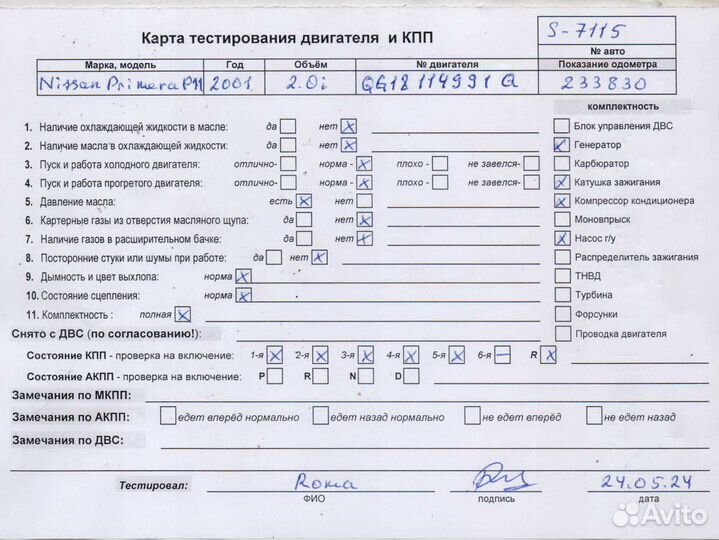 Карта тестирования двигателя и КПП
S-7115
№ авто
Марка, модель Год Объём № двигателя Показание одометра
Nissan Primera P11 2001 2.0i QG18 114991 Q 233830
комплектность
1. Наличие охлаждающей жидкости в масле: да нет X Блок управления ДВС
2. Наличие масла в охлаждающей жидкости: да нет X Генератор
3. Пуск и работа холодного двигателя: отлично- норма - X плохо - не завелся- Карбюратор
4. Пуск и работа прогретого двигателя: отлично- норма - X плохо - не завелся- X Катушка зажигания
5. Давление масла: есть X нет X Компрессор кондиционера
6. Картерные газы из отверстия масляного щупа: да нет X Моновпрыск
7. Наличие газов в расширительном бачке: да нет X X Насос г/у
8. Посторонние стуки или шумы при работе: да нет X Распределитель зажигания
9. Дымность и цвет выхлопа: норма X ТНВД
10. Состояние сцепления: норма X Турбина
11. Комплектность : полная X Форсунки
Снято с ДВС (по согласованию!): Проводка двигателя
Состояние КПП - проверка на включение: 1-я X 2-я X 3-я X 4-я X 5-я X 6-я — R X
Состояние АКПП - проверка на включение: P R N D
Замечания по МКПП:
Замечания по АКПП: едет вперёд нормально едет назад нормально не едет вперёд не едет назад
Замечания по ДВС:
Тестировал: Roma 24.05.24
ФИО подпись дата
Avito